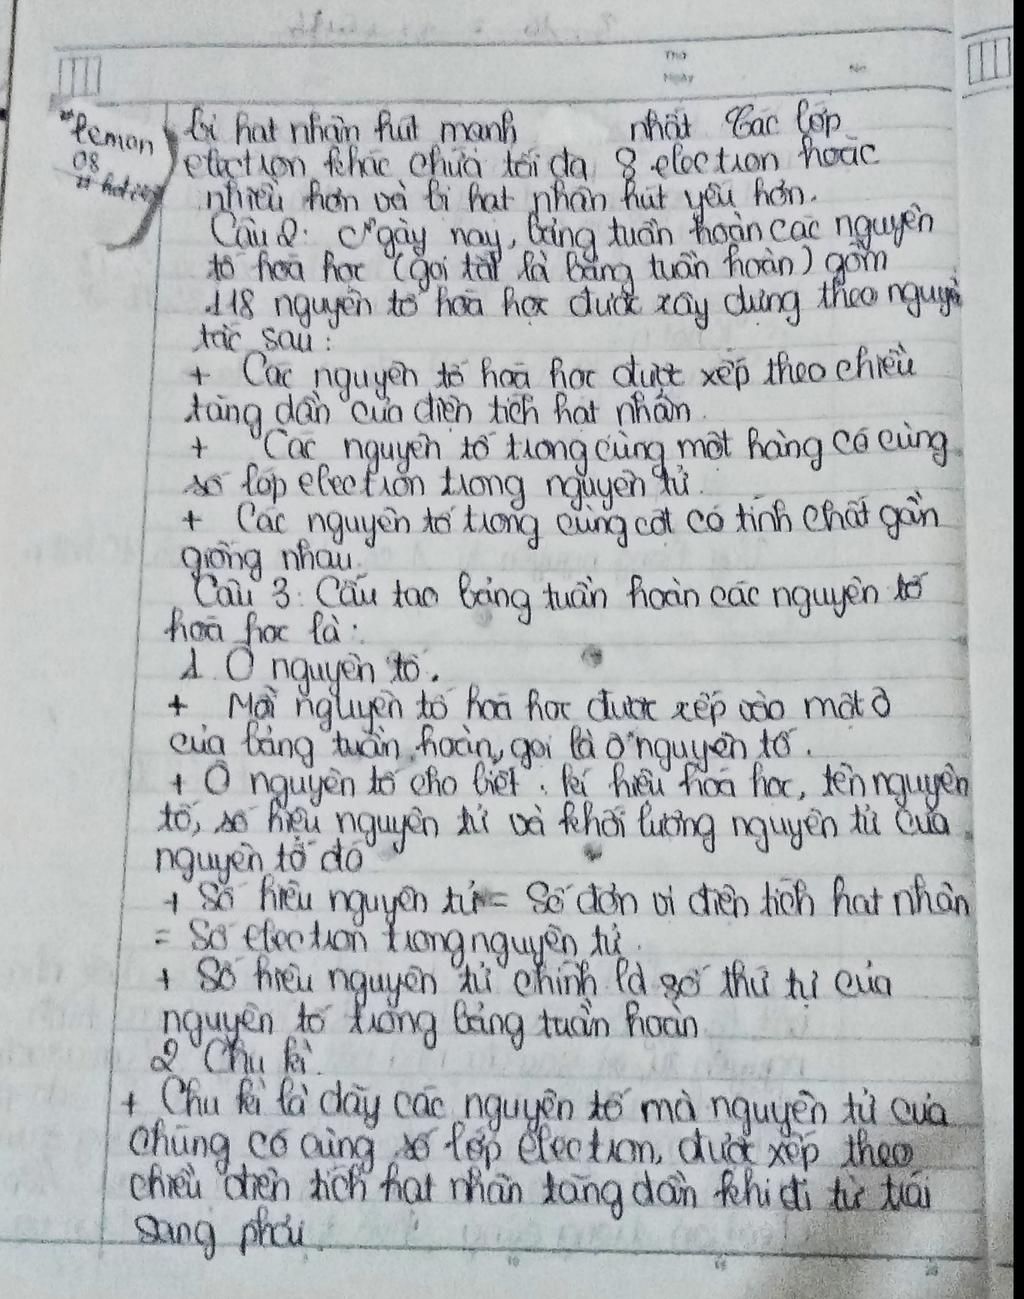 Thứ
Ngày
No
"lemon
08
bị hạt nhân hút mạnh nhất Các lớp
election khác chứa tối đa 8 election hoặc
nhiều hơn và bị hạt nhân hút yếu hơn.
Câu 2: Ngày nay, bảng tuần hoàn các nguyên
tố hoá học (gọi tắt là bảng tuần hoàn) gồm
118 nguyên tố hoá học được xây dựng theo nguyê
tắc sau:
+ Các nguyên tố hoá học được xếp theo chiều
tăng dần của điện tích hạt nhân.
+ Các nguyên tố trong cùng một hàng có cùng
số lớp election trong nguyên tử.
+ Các nguyên tố trong cùng cột có tính chất gần
giống nhau.
Câu 3: Cấu tạo bảng tuần hoàn các nguyên tố
hoá học là:
1. Ô nguyên tố.
+ Mỗi nguyên tố hoá học được xếp vào một ô
của bảng tuần hoàn, gọi là ô nguyên tố.
+ Ô nguyên tố cho biết: kí hiệu hoá học, tên nguyên
tố, số hiệu nguyên tử và khối lượng nguyên tử của
nguyên tố đó
+ Số hiệu nguyên tử = Số đơn vị điện tích hạt nhân
= Số election trong nguyên tử.
+ Số hiệu nguyên tử chính là số thứ tự của
nguyên tố trong bảng tuần hoàn
2 Chu kì.
+ Chu kì là dãy các nguyên tố mà nguyên tử của
chúng có cùng số lớp election, được xếp theo
chiều điện tích hạt nhân tăng dần khi đi từ trái
sang phải